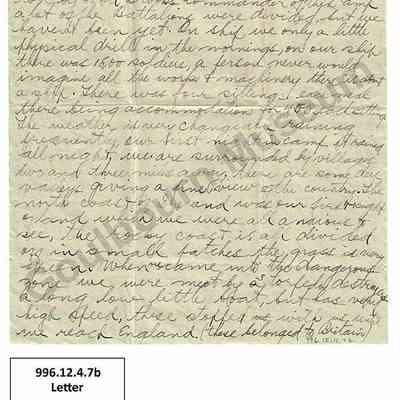 commander of ship and
a lot of the Battalions were divided but we
haven't been yet. On ship we only a little
physical drill in the mornings, on our ship
there was 1800 soldiers, a person never would
imagine all the works & machinery there is about
a ship. There was four sittings each meal
there being accommodation for 450 each sitting
The weather is very changeable raining
frequently, our first night in camp it rained
all night, we are surrounded by villages
two and three miles away, there are some
giving a fine view of the country. The
north coast of and was our first sight
of land which we were all anxious to
see, the coast is all divided
off in small patches the grass is very
green. When we came into the dangerous
zone we were meet by a torpedo destroyer
a long low little boat, but has very
high speed, these stopped with us until
we reach England (these belonged to Britain)
996.12.4.7b
Goulbourn Museum
996.12.4.7b
Letter